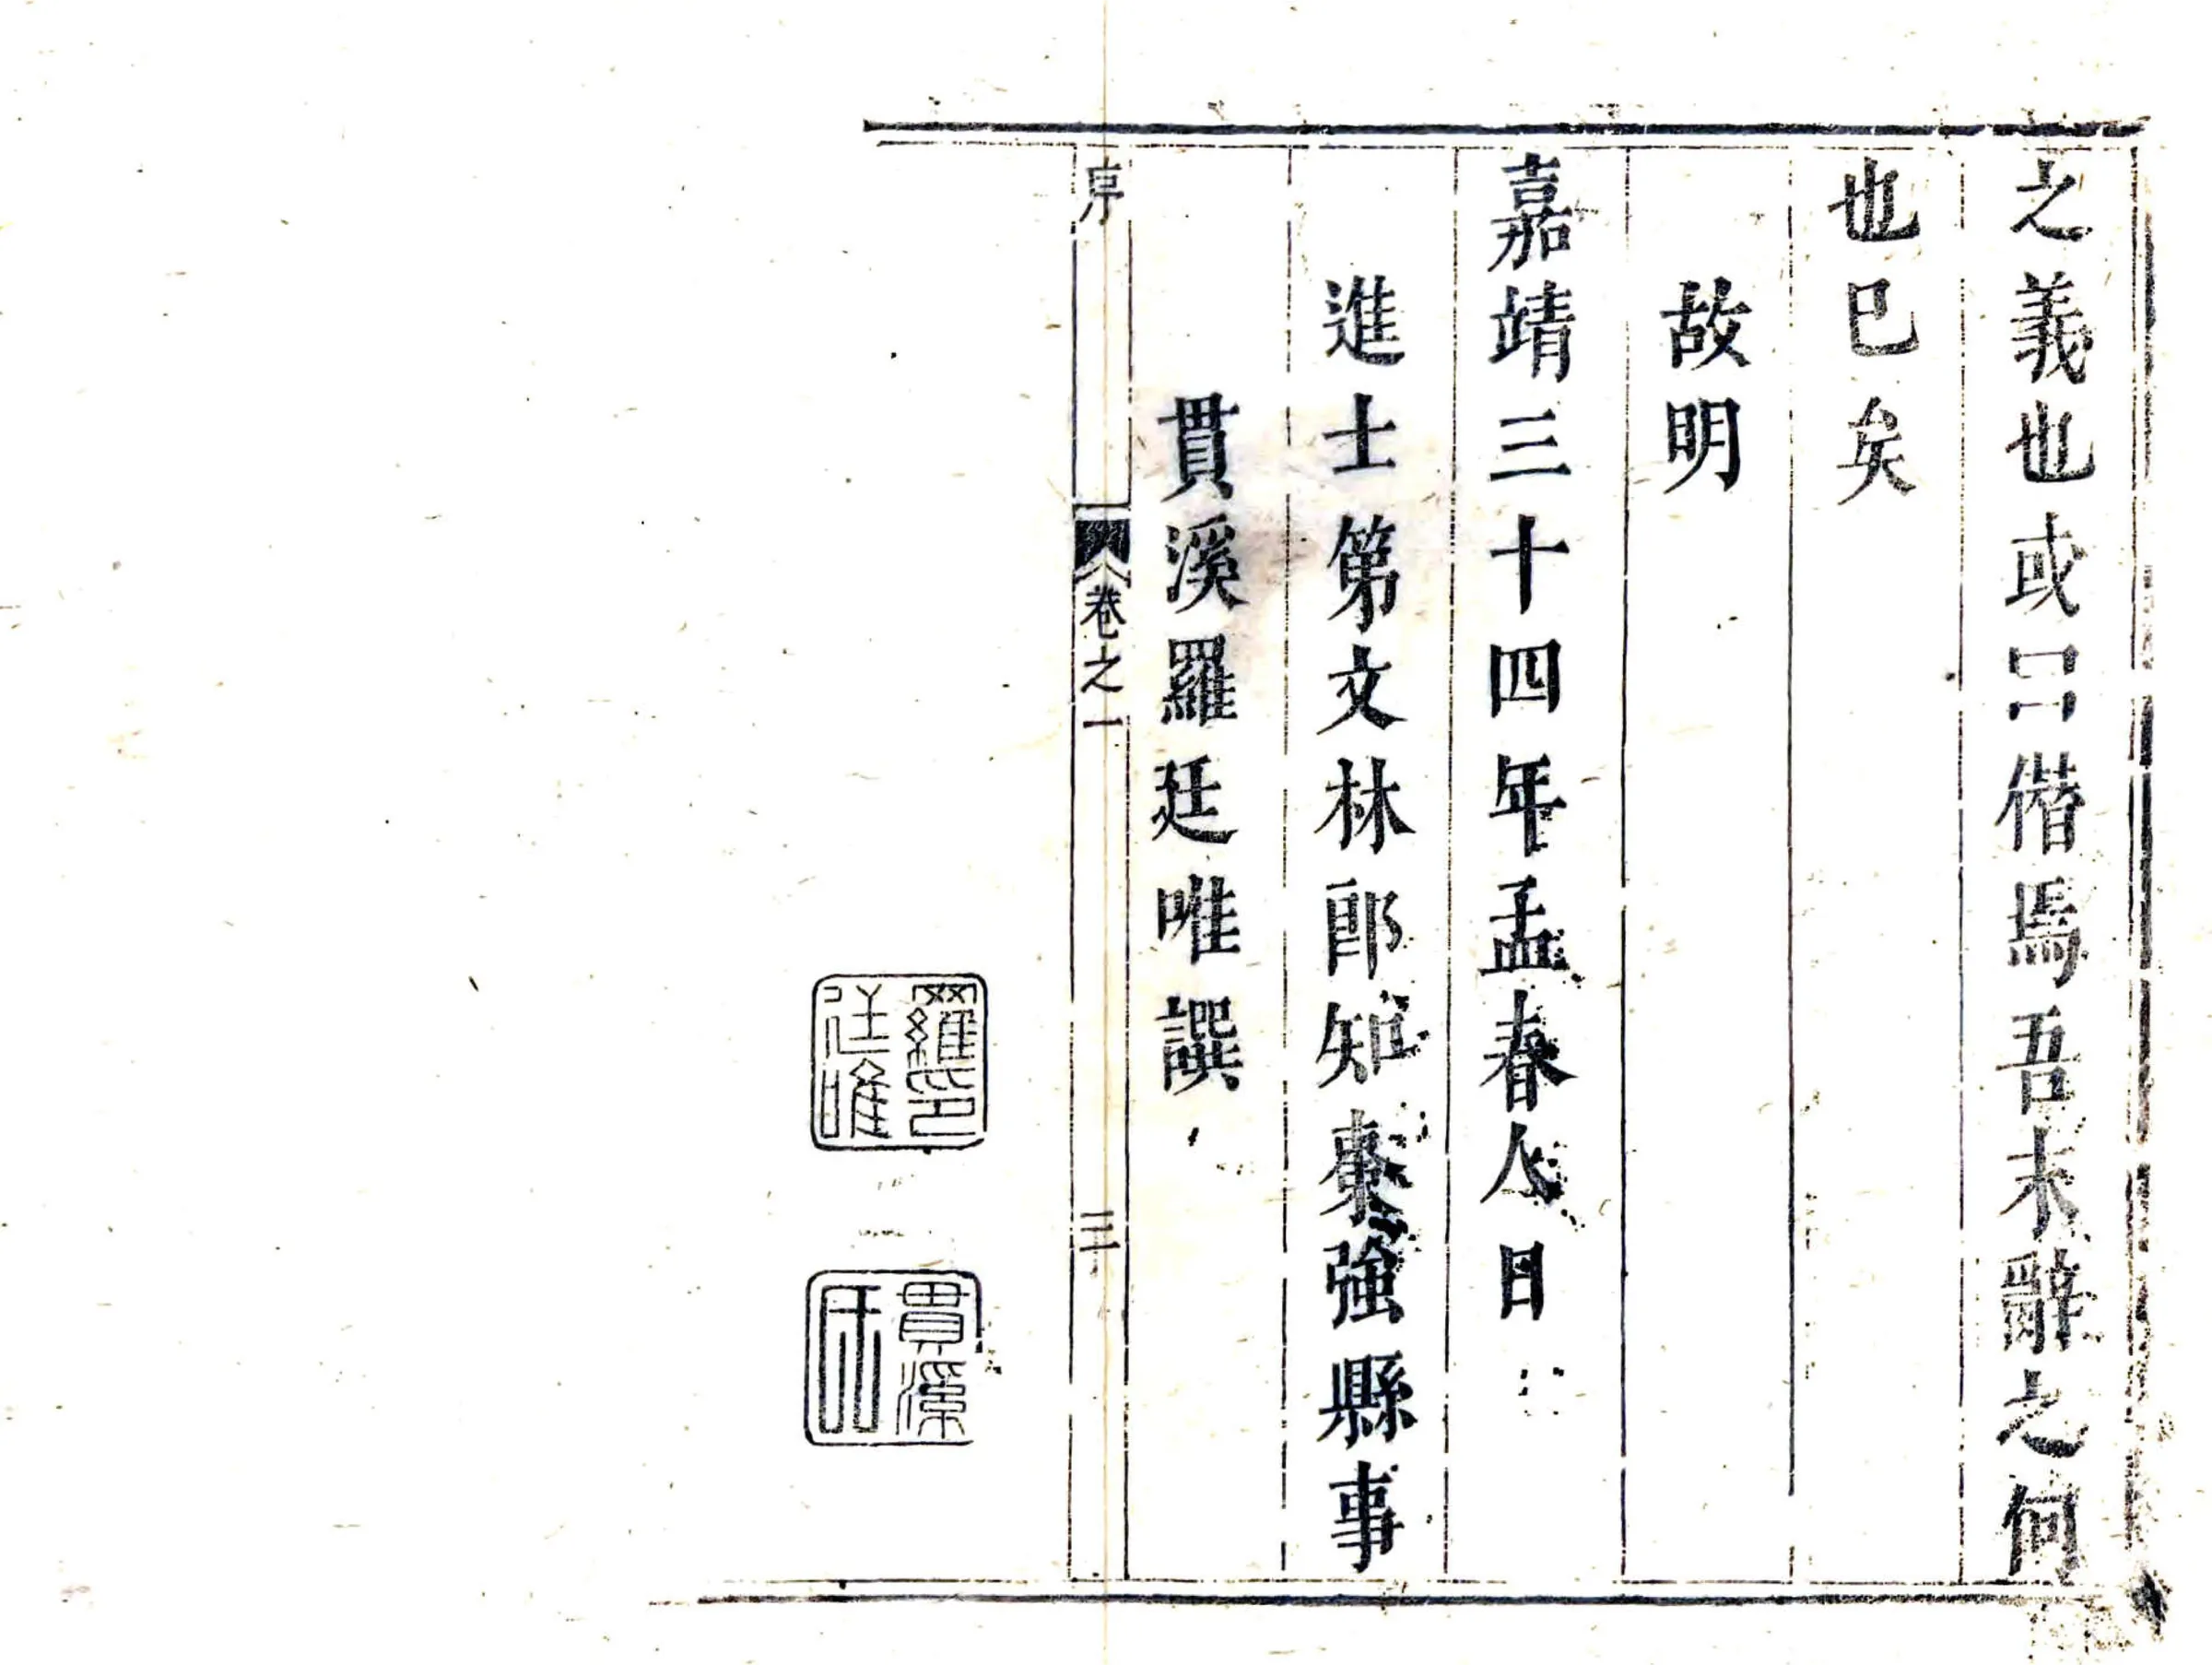 之義也或曰僭焉吾未辭之何
也已矣
故明
嘉靖三十四年孟春人日
進士第文林郎知棗強縣事
貫溪羅廷唯譔
序
卷之一
三
羅印
廷唯
貫溪